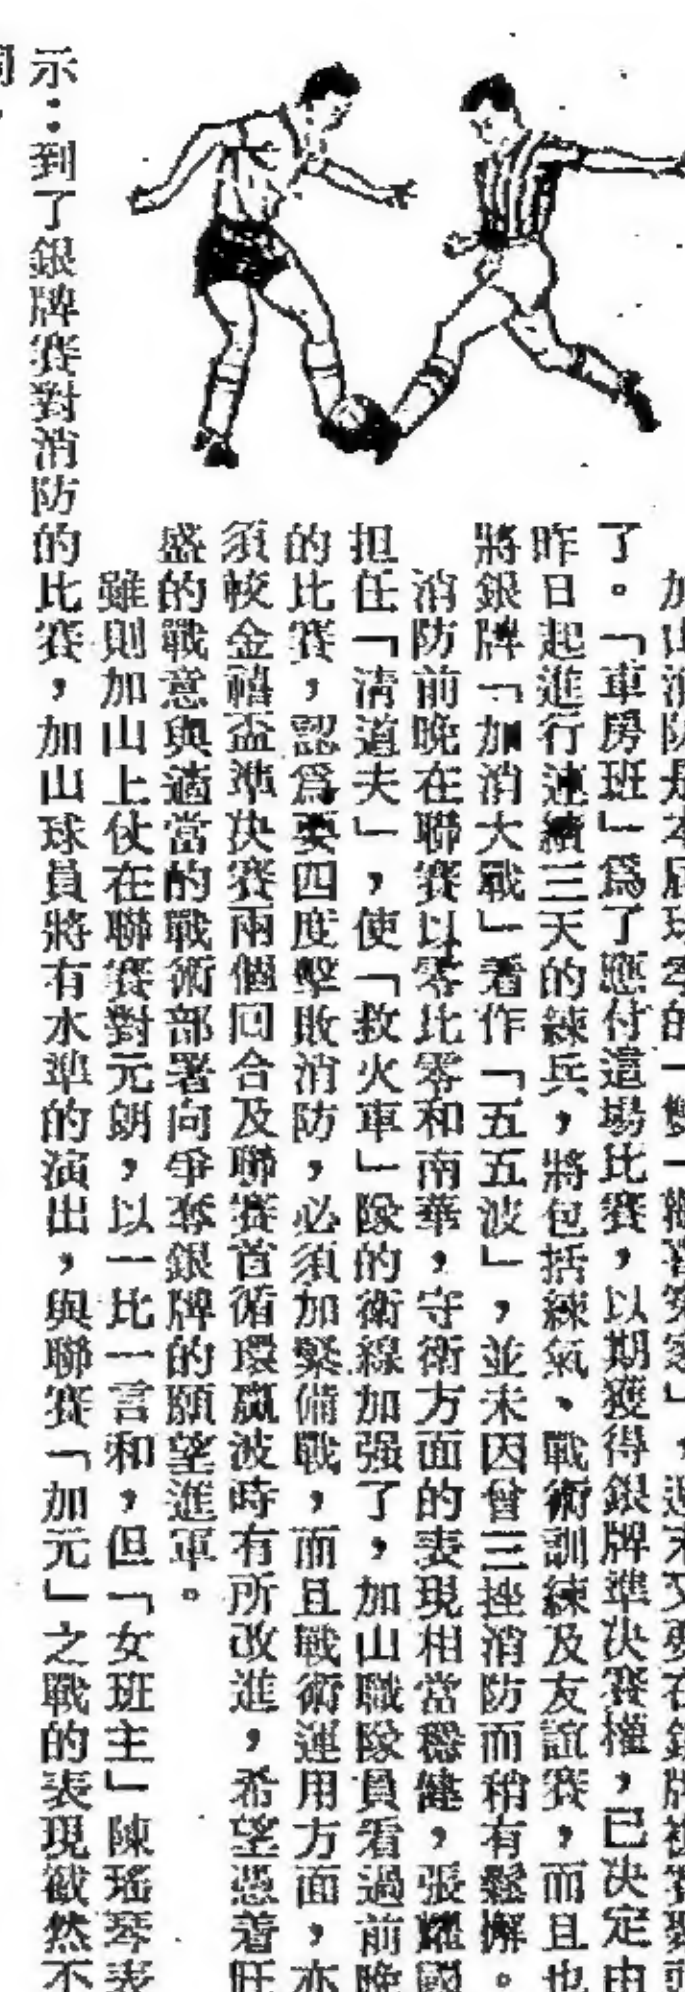 加山消防是本屆球季的一雙「歡喜冤家」，週末又要在銀牌複賽聚頭
了。「車房班」爲了應付這場比賽，以期獲得銀牌準决賽權，已决定由
昨日起進行連續三天的練兵，將包括練氣、戰術訓練及友誼賽，而且也
將銀牌「加消大戰」看作「五五波」，並未因曾三挫消防而稍有鬆懈。
消防前晚在聯賽以零比零和南華，守衛方面的表現相當穩健，張耀國
担任「清道夫」，使「救火車」隊的衛線加强了，加山職隊員看過前晚
的比賽，認爲要四度擊敗消防，必須加緊備戰，而且戰術運用方面，亦
須較金禧盃準决賽兩個回合及聯賽首循環贏波時有所改進，希望憑着旺
盛的戰意與適當的戰術部署向爭奪銀牌的願望進軍。
雖則加山上仗在聯賽對元朗，以一比一言和，但「女班主」陳瑤琴表
示：到了銀牌賽對消防的比賽，加山球員將有水準的演出，與聯賽「加元」之戰的表現截然不
同，